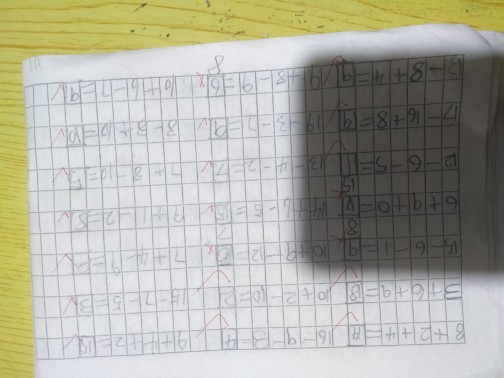 8+2+4=14 16-9-3=4 9+4+2=15
3+6+9=18 10+2-10=2 15-7-5=3
15-6-1=9 10+9-12= 7+4-9=2
8 7
6+9+0= 14+6-5=15 9+1-2=8
15
12-6-5=1 13-4-2=7 7+8-10=5
17-16+8=9 19-3-7=9 8-8+10=10
13-8+4=9 9+8-9=6 10+6-7=9
8